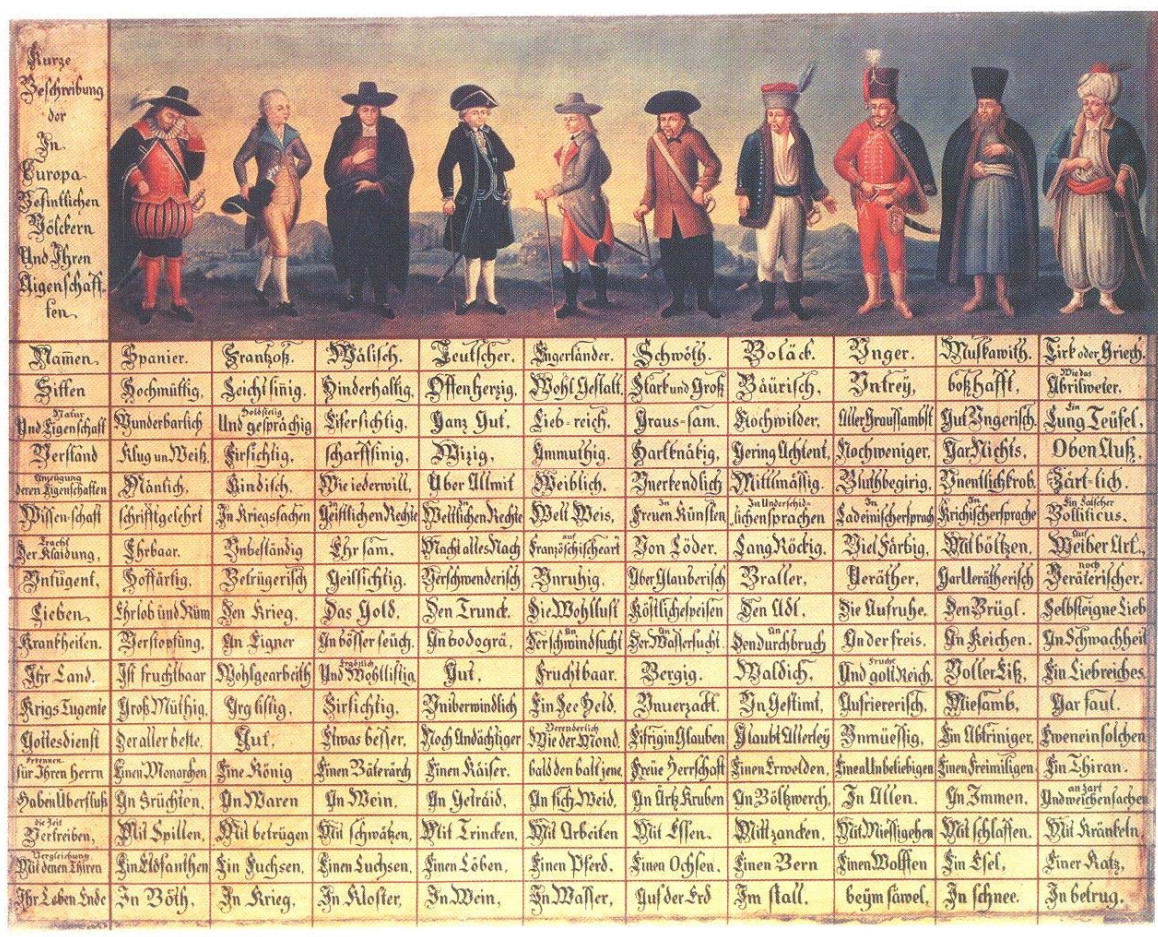 Kurze
Beschreibung
der
In
Europa
Befintlichen
Völckern
Und Ihren
Aigenschaff-
ten.
Namen. Spanier. Frantzoß. Wälisch. Teutscher. Engerländer. Schwöth. Boläck. Unger. Muskawith. Tirk oder Griech.
Sitten Hochmüttig, Leichtsinig, Hinderhaltig, Offenherzig, Wohl Gestalt, Stark und Groß Bäurisch, Untrey, boßhafft, Wie das Abrilweter.
Natur Und Eigenschaft Wunderbarlich Holdseelig Und gesprächig Eifersichtig, Ganz Gut, Lieb-reich, Graus-sam, Nochwilder, Aller Graussambst Gut Ungerisch, Ein Lung Teüfel,
Verstand Klug un Weiß, Firsichtig, scharffsinig, Wizig, Ammuthig, Hartknäkig, Gering Achtent, Nochweniger, Gar Nichts, Oben Auß,
Anzeugung deren Eigenschaften Mänlich, Kindisch, Wie iederwill, Über Allmit Weiblich, Unerkendlich Mittlmässig, Bluthbegirig, Unentlichkrob, Zärt-lich.
Wissenschaft schriftgelehrt In Kriegssachen Geistlichen Rechte In Weltlichen Rechte Welt Weis, In Freuen Künsten, In Underschid-lichensprachen In Ladeinischersprach In Krichischersprache Ein Falscher Bolliticus.
Tracht Der Klaidung, Ehrbaar. Unbeständig Ehrsam. Macht alles Nach auf Französchischeart Von Löder. Lang Röckig, Viel Färbig, Mit böltzen, Auf Weiber Art,
Untugent, Hoffärtig, Betrügerisch Geilsichtig, Verschwenderisch Unruhig, Aber Glauberisch Braller, Veräther, Gar Verätherisch noch Veräterischer.
Lieben. Ehrlob und Rüm Den Krieg, Das Gold, Den Trunck, Die Wohllust Köstlichespeisen Den Adl, Die Aufruhe, Den Brügl, Selbsteigne Lieb
Krankheiten. Verstopfung, An Eigner An bösser seüch, An bodogrä, An Der schwindsucht An Der Wassersucht An Den durchbruch An der freis, An Keichen, An Schwachheit
Ihr Land. Ist fruchtbaar Wohlgearbeith Ergötzlich Und Wohllistig Gut, Fruchtbaar. Bergig. Waldich. Frucht Und golt Reich. Voller Eiß, Ein Liebreiches
Krigs Tugente Groß Müthig, Arg listig, Firsichtig, Uniberwindlich Ein See Held, Unverzackt. Un Gestimt, Aufriererisch, Miesamb, Gar faul.
Gottesdienst Der aller beste, Gut, Etwas besser, Noch Andächtiger Veränderlich Wie der Mond, Eifrig in Glauben Glaubt Allerley Unmüessig, Ein Abtriniger, Eweneinsolchen
Erkennen für Ihren herrn Einen Monarchen Eine König Einen Bäterärch Einen Käiser. bald den balt jene, Freüe Herrschaft Einen Erwelden, Einen Unbeliebigen Einen Freimiligen Ein Thiran.
Haben Überfluß An Früchten, An Waren An Wein, An Geträid, An fich Weid, An Ärtz Kruben An Böltzwerch, In Allen. An Immen. an zart Und weichen sachen
die Zeit Vertreiben, Mit Spillen, Mit betrügen Mit schwätzen, Mit Trincken, Mit Arbeiten Mit Essen. Mitt zancken, Mit Miessigehen Mit schlaffen. Mit Kränkeln,
Vergleichung Mit denen Thiren Ein Elofanthen Ein Fuchsen, Einen Luchsen, Einen Löben, Einen Pferd. Einen Ochsen, Einen Bern Einen Wolffen Ein Esel, Einer Katz,
Ihr Leben Ende In Böth, In Krieg, In Kloster, In Wein, In Wasser, Auf der Erd Im stall, beym säwel, In schnee. In betrug.